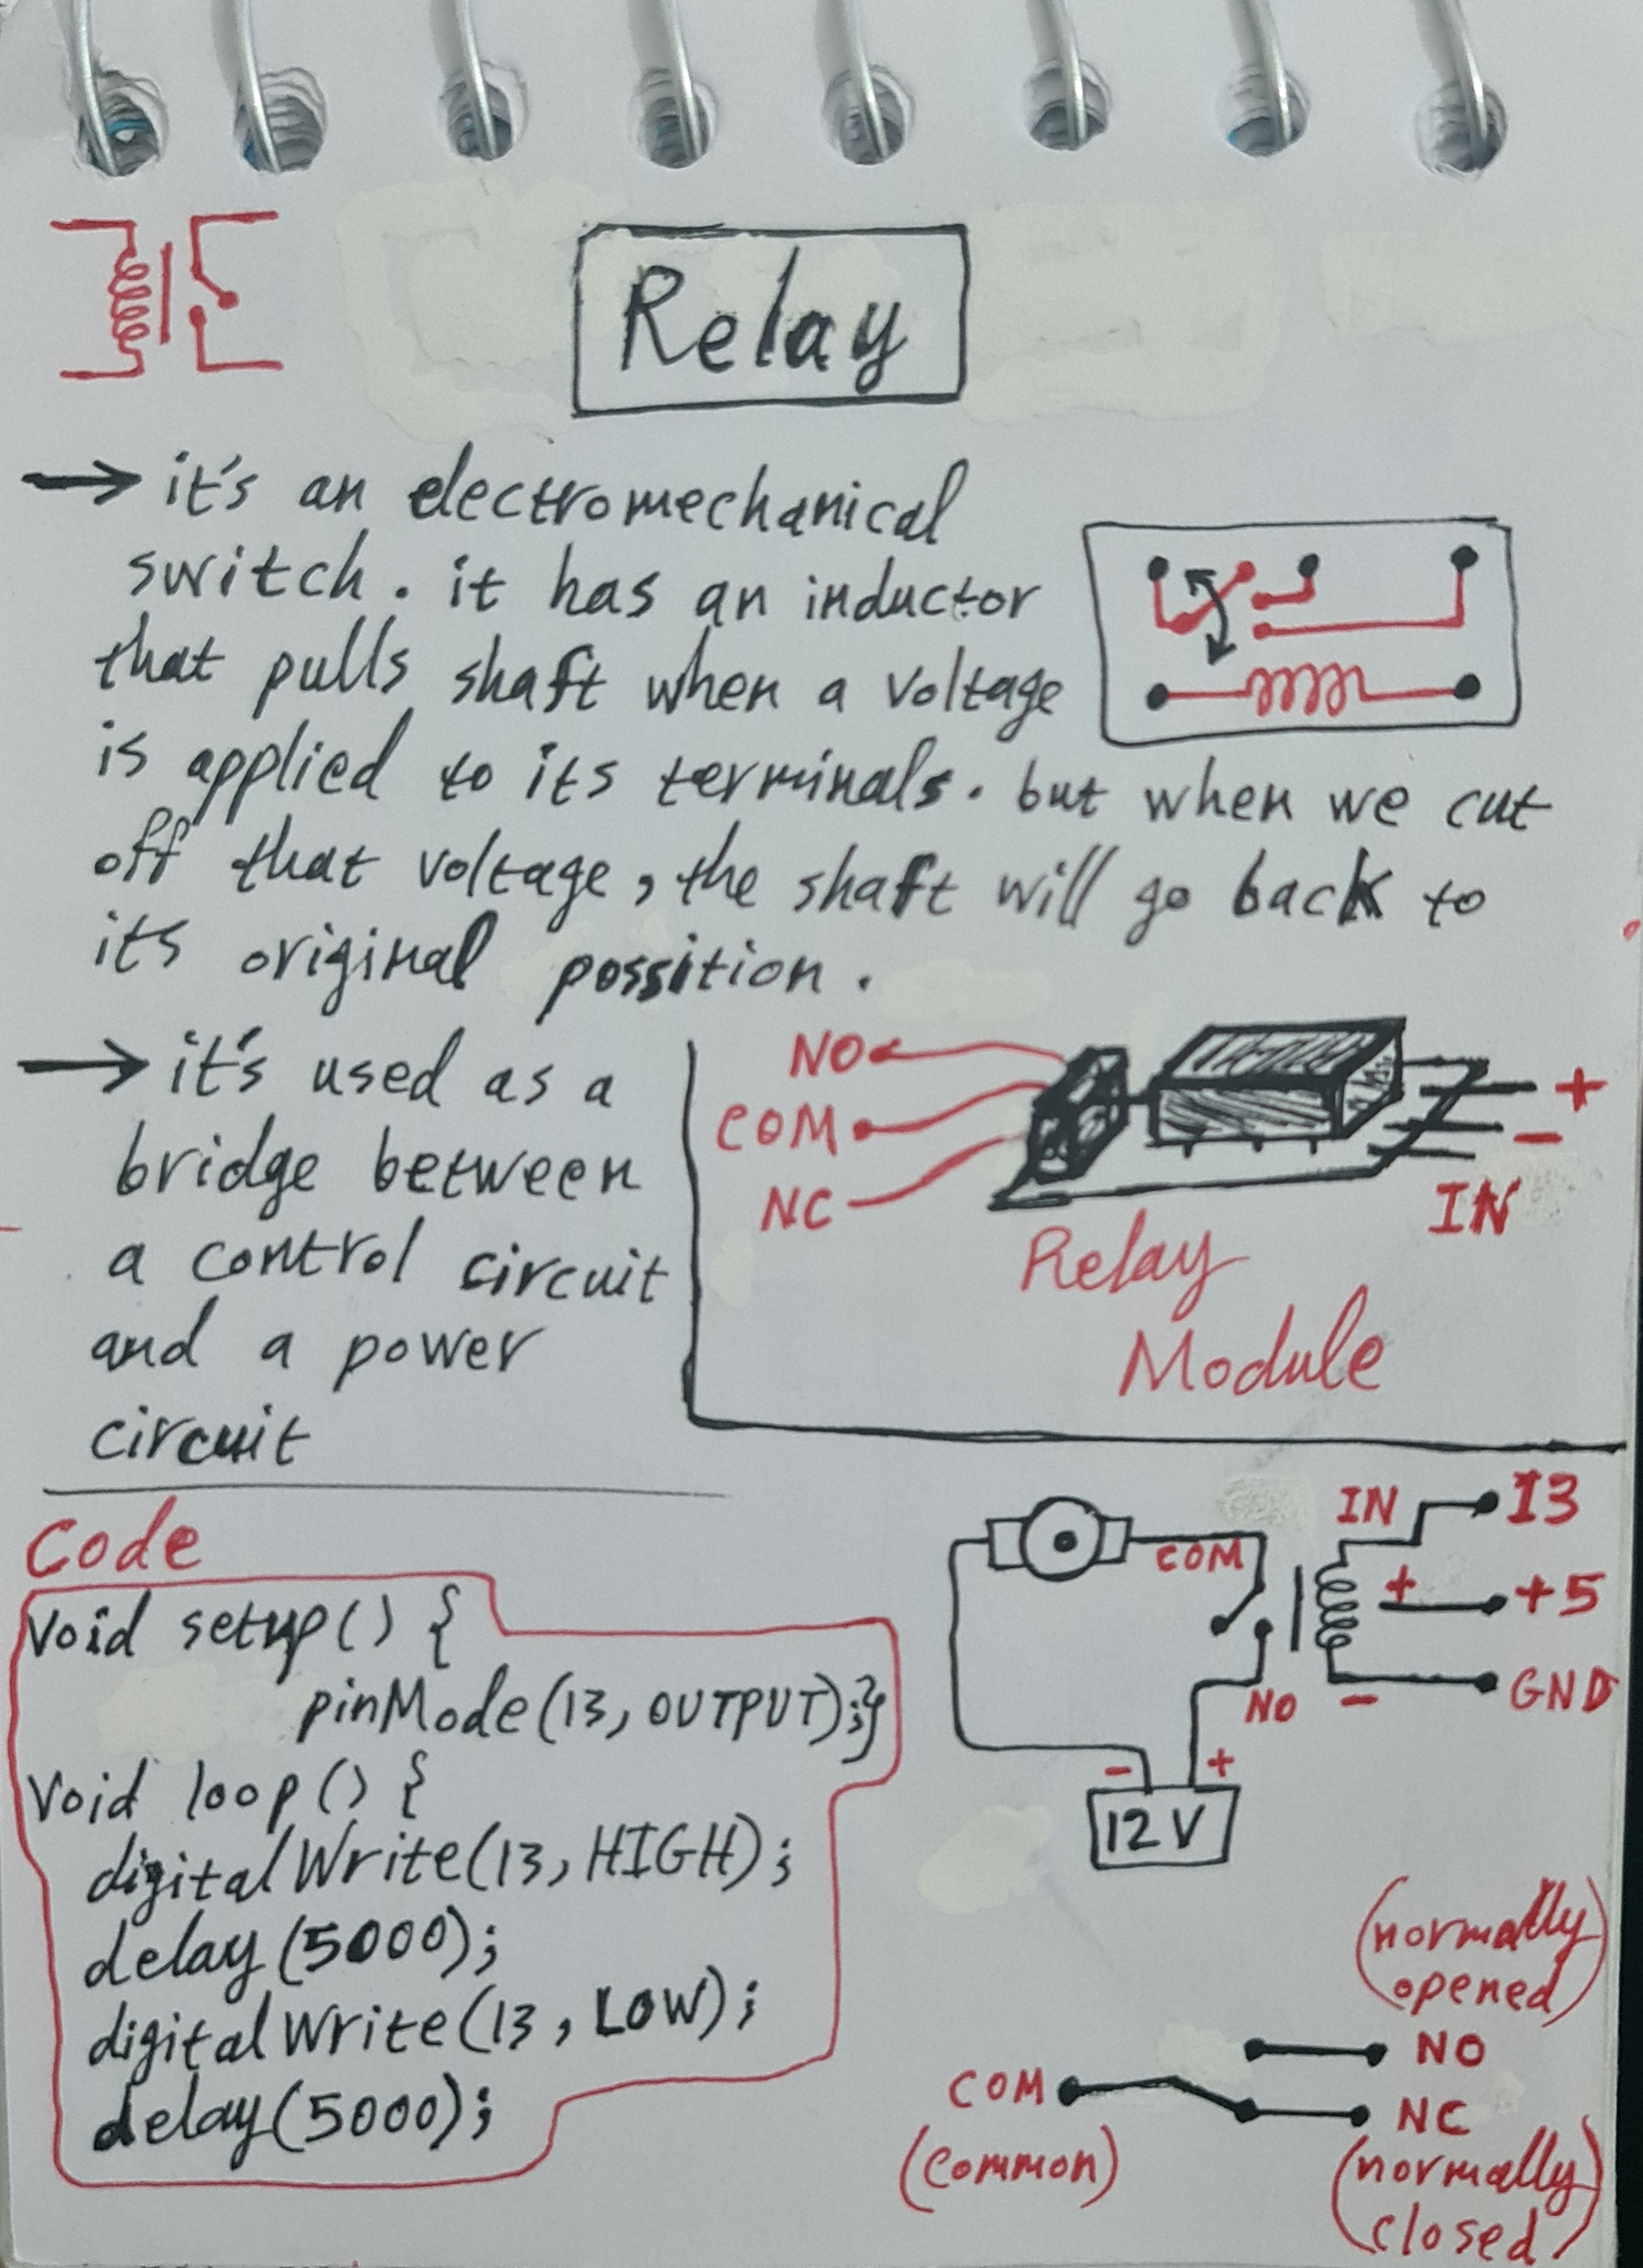 Relay
→ it's an electromechanical
switch. it has an inductor
that pulls shaft when a voltage
is applied to its terminals. but when we cut
off that voltage, the shaft will go back to
its original possition.
→ it's used as a
bridge between
a control circuit
and a power
circuit
NO
COM
NC
+
-
IN
Relay
Module
Code
void setup() {
pinMode(13, OUTPUT);}
void loop() {
digitalWrite(13, HIGH);
delay(5000);
digitalWrite(13, LOW);
delay(5000);
IN 13
COM
+ +5
NO - GND
- +
12V
(normally
opened)
NO
COM
NC
(common)
(normally
closed)